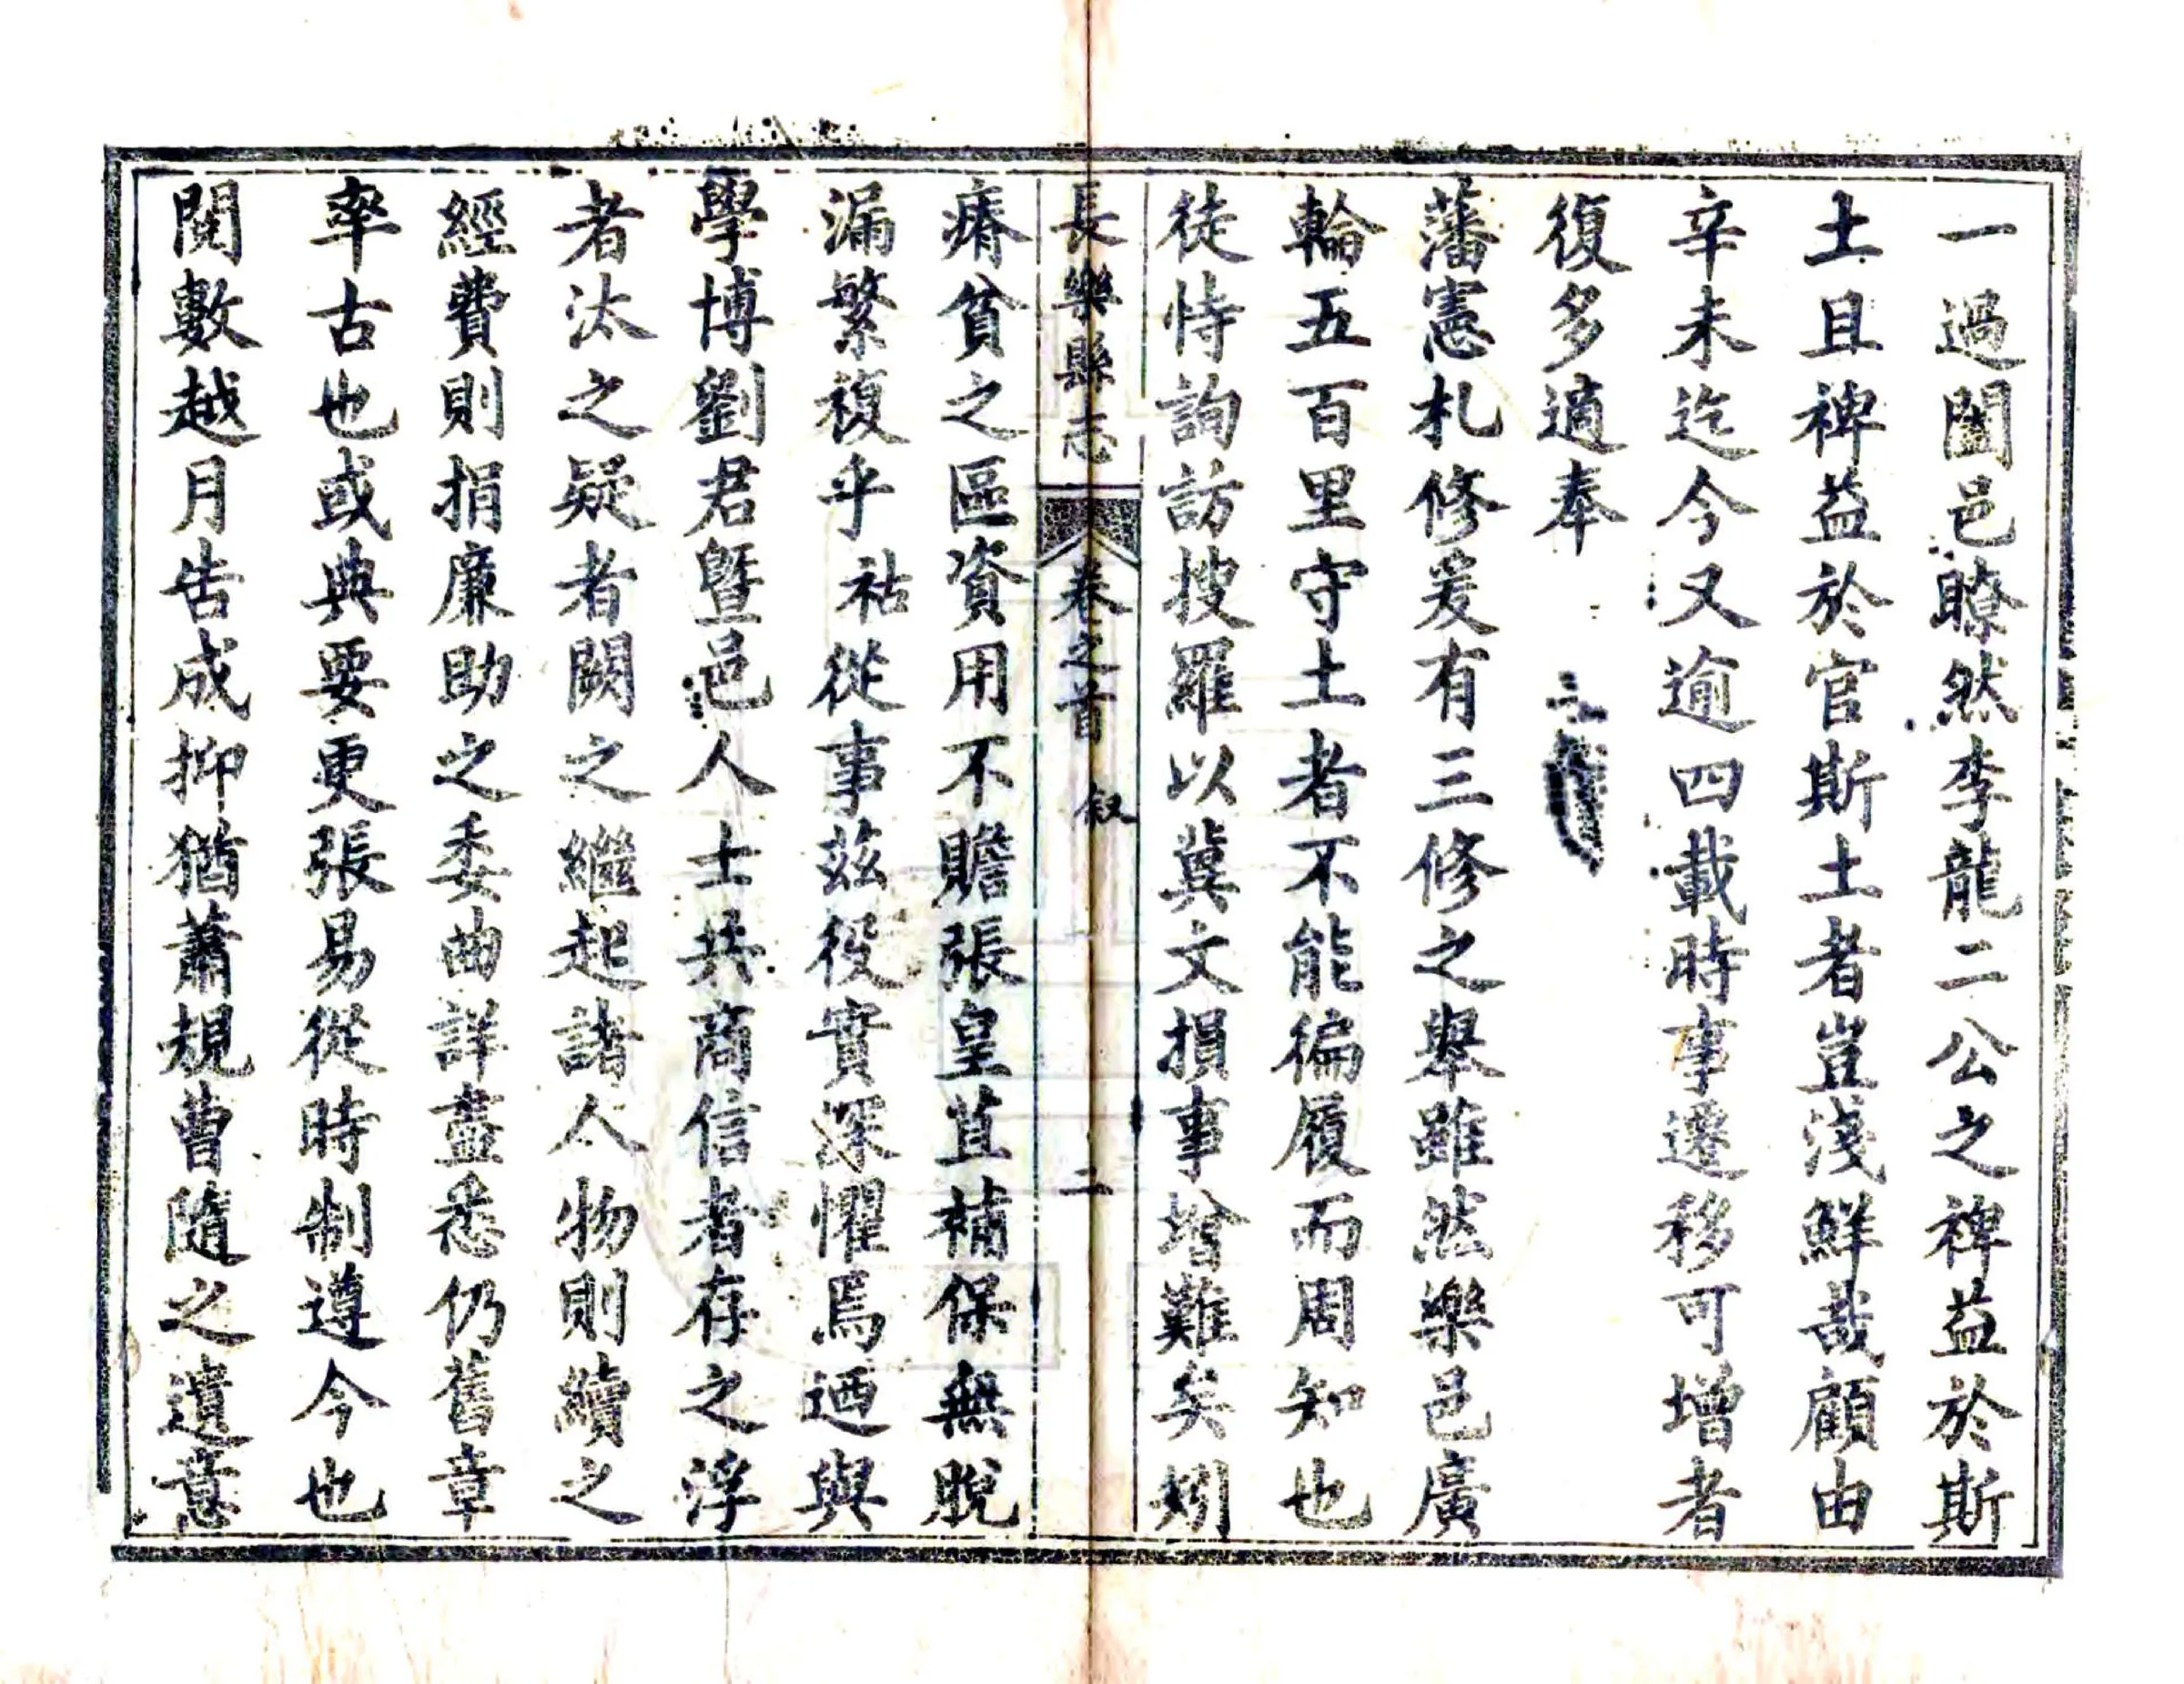 一過闔邑瞭然李龍二公之裨益於斯
土且裨益於官斯土者豈淺鮮哉顧由
辛未迄今又逾四載時事遷移可增者
復多適奉
藩憲札修爰有三修之舉雖然樂邑廣
輪五百里守土者不能徧履而周知也
徒恃詢訪搜羅以冀文損事增難矣矧
長樂縣志
卷之首
叙
二
瘠貧之區資用不贍張皇苴補保無脫
漏繁複乎祜從事茲役實深懼焉迺與
學博劉君曁邑人士共商信者存之浮
者汰之疑者闕之繼起諸人物則續之
經費則捐廉助之委曲詳盡悉仍舊章
率古也或典要更張易從時制遵今也
閱數越月告成抑猶蕭規曹隨之遺意